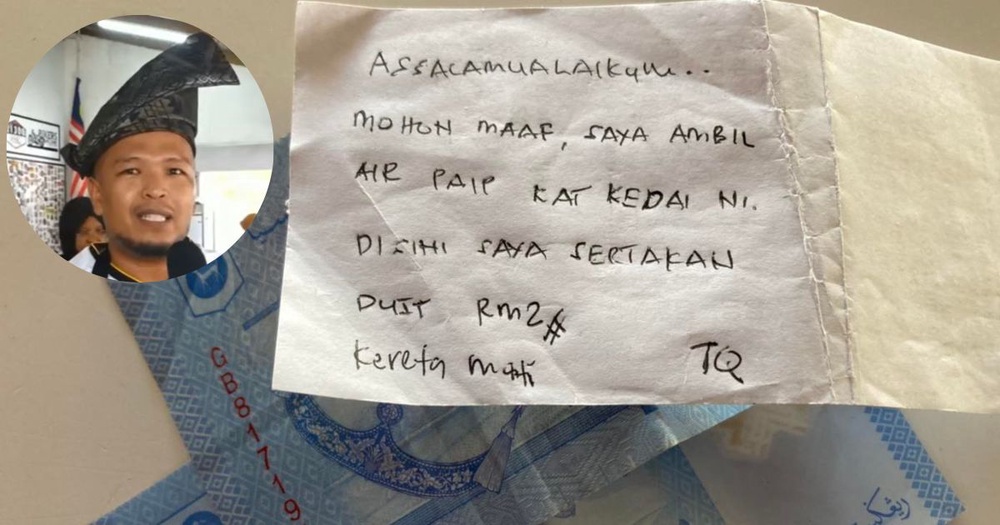 ASSALAMUALAIKUM..
MOHON MAAF, SAYA AMBIL
AIR PAIP KAT KEDAI NI.
DISINI SAYA SERTAKAN
DUIT RM2#
Kereta mati
TQ
GB81719